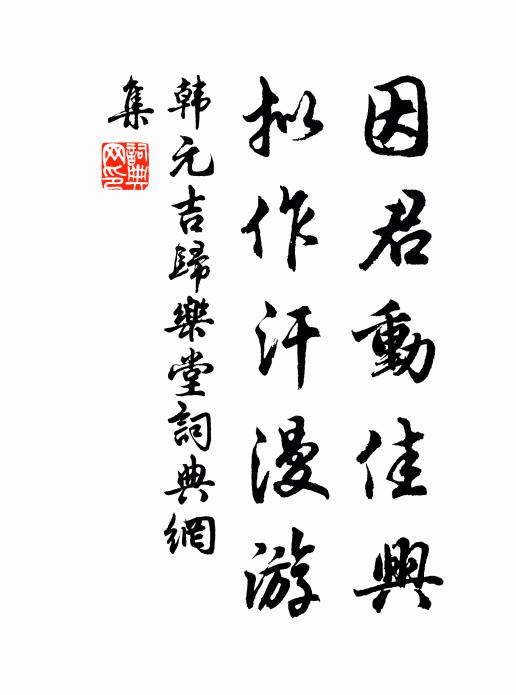 因君動佳興
拟作汗漫游
韩元吉歸樂堂詞典網
集
詞典網印